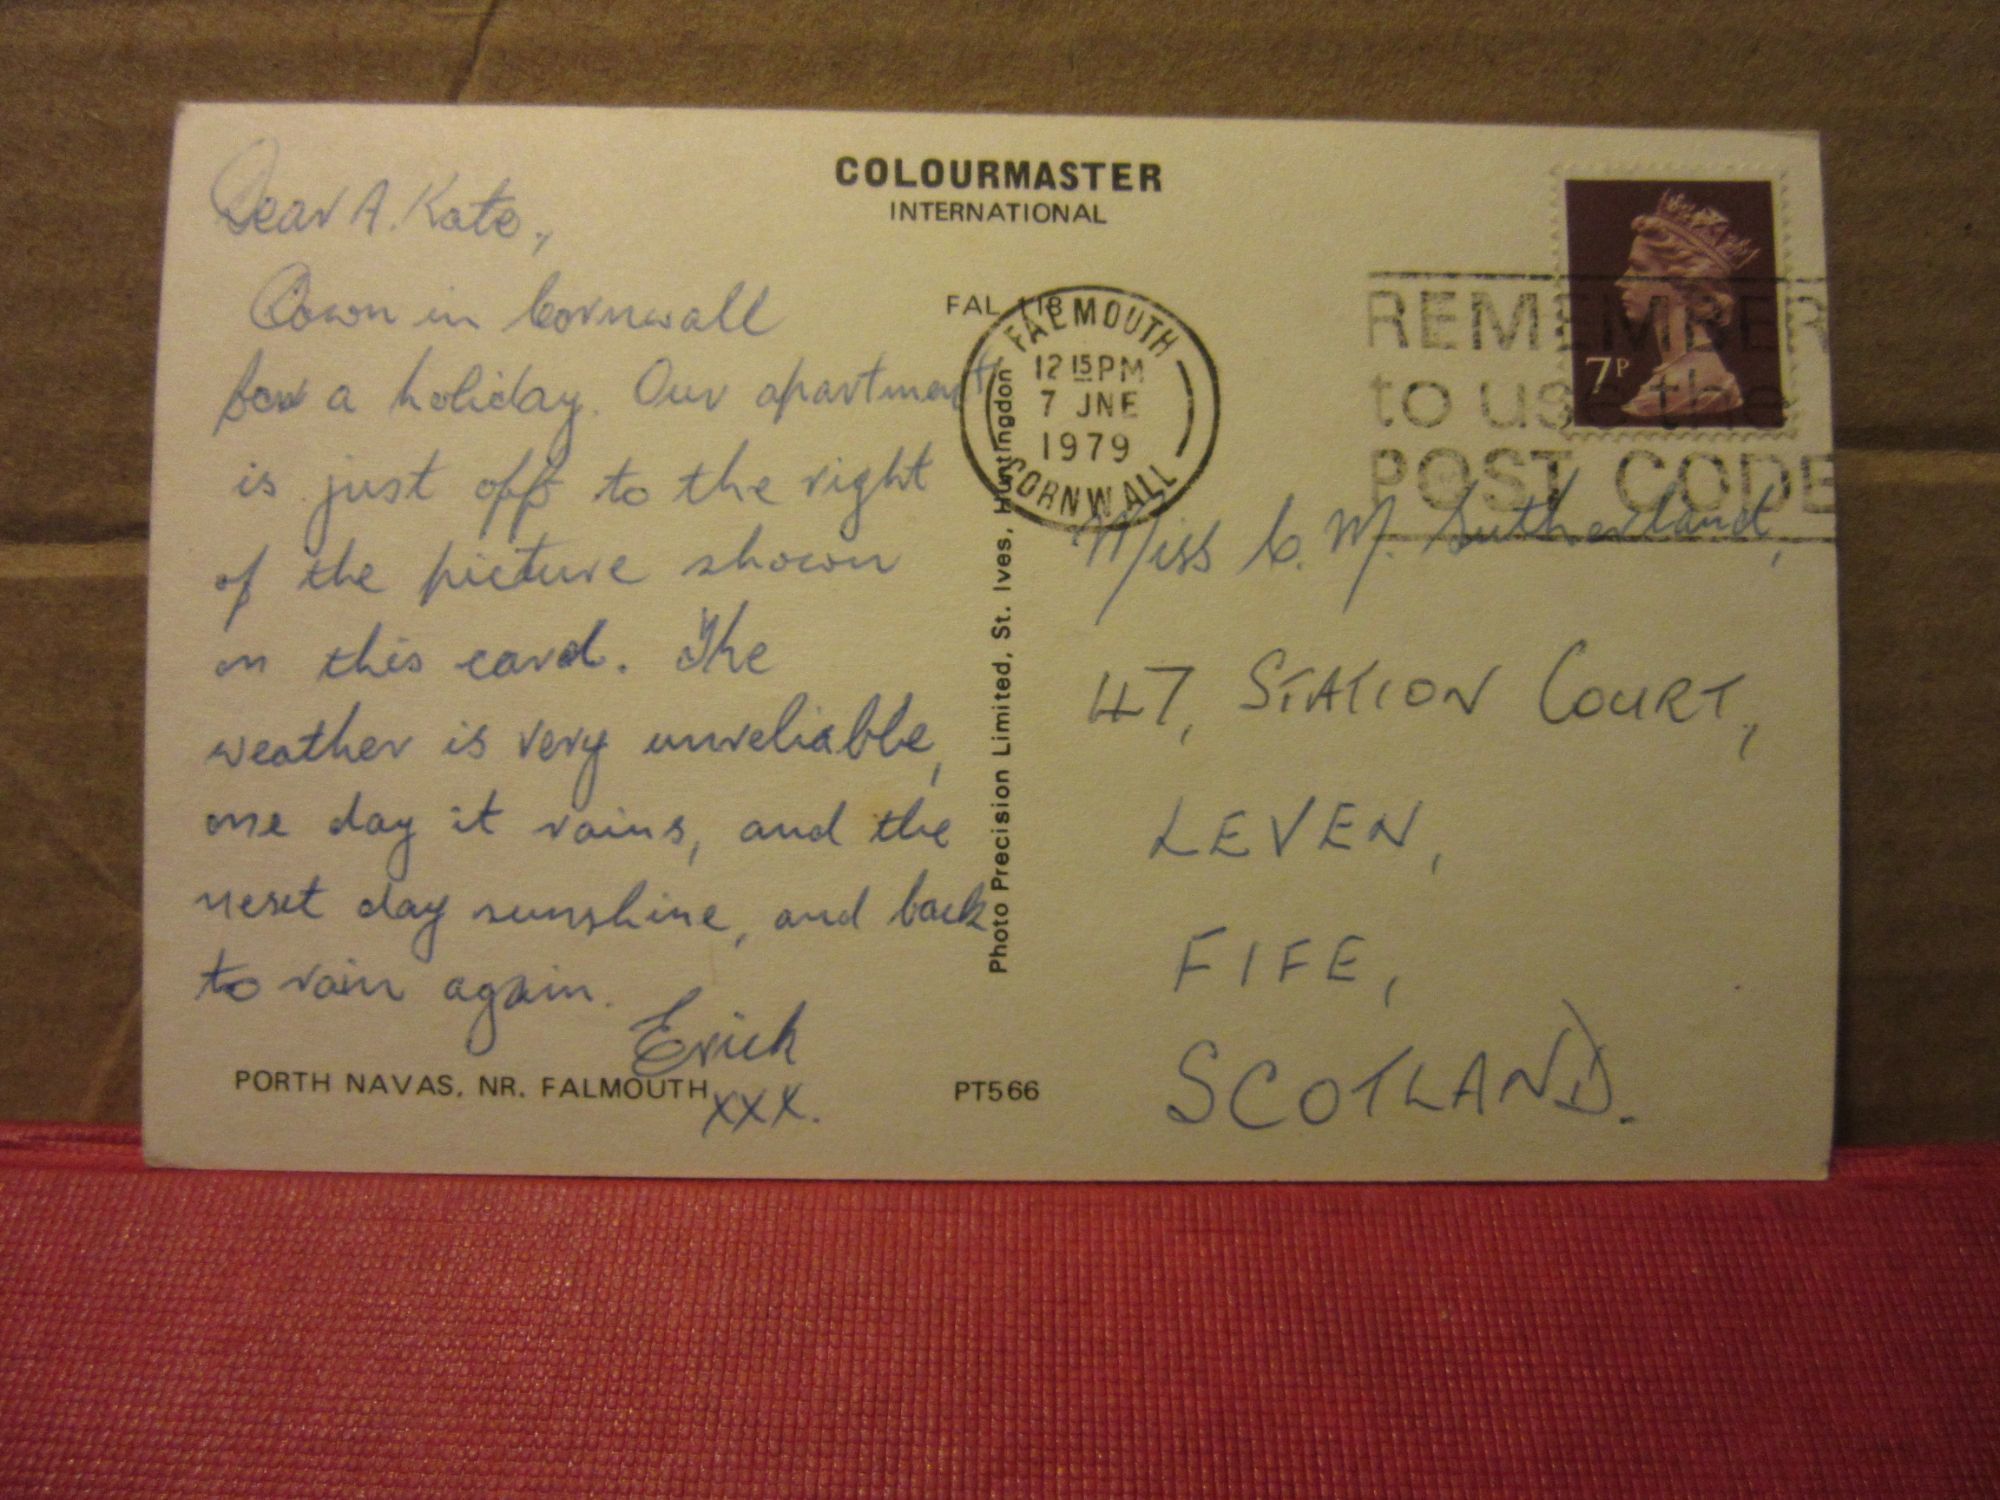 COLOURMASTER
INTERNATIONAL
Dear A. Kate,
Down in Cornwall
for a holiday. Our apartment
is just off to the right
of the picture shown
on this card. The
weather is very unreliable,
one day it rains, and the
next day sunshine, and back
to rain again.
Erick
xxx.
PORTH NAVAS, NR. FALMOUTH
PT566
FAL 118
Photo Precision Limited, St. Ives, Huntingdon
FALMOUTH
12 15 PM
7 JNE
1979
CORNWALL
REMEMBER
to use the
POST CODE
7P
Miss C. M. Sutherland,
47, STATION COURT,
LEVEN,
FIFE,
SCOTLAND.